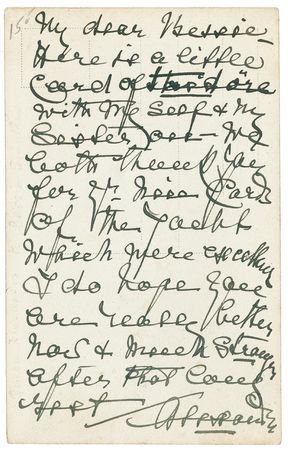 15
My dear Bessie –
Here is a little
Card of
with My Self & My
Sister on – We
both thank you
for yr. Nice Cards
of the Yacht
which were excellent
I do hope you
are really better
now & Much Stronger
after that long
rest Alexandra